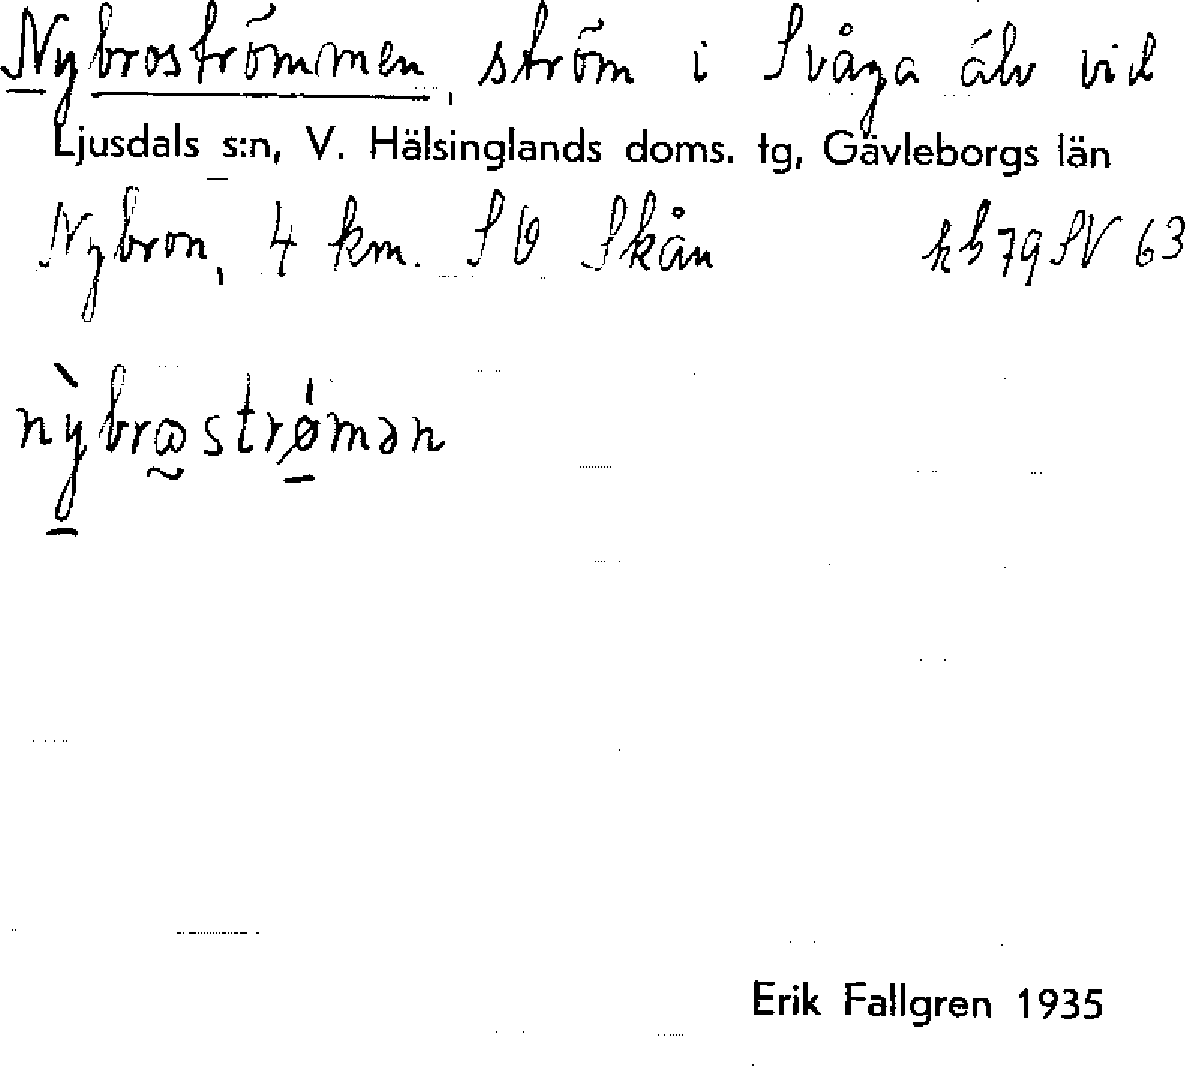 Nybroströmmen, ström i Svåga älv vid
Ljusdals s:n, V. Hälsinglands doms. tg, Gävleborgs län
Nybron, 4 km. SO Skån kb 79 SV 63
nỳbrꜵstrǿmən
Erik Fallgren 1935